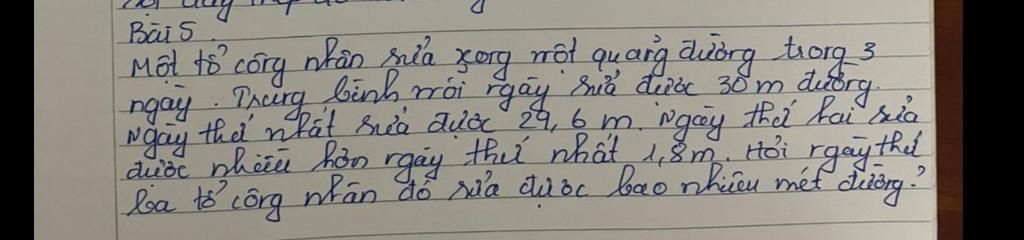 Bài 5.
Một tổ công nhân sửa xong một quãng đường trong 3
ngày. Trung bình mỗi ngày sửa được 30 m đường.
Ngày thứ nhất sửa được 29,6 m. Ngày thứ hai sửa
được nhiều hơn ngày thứ nhất 1,8m. Hỏi ngày thứ
ba tổ công nhân đó sửa được bao nhiêu mét đường?